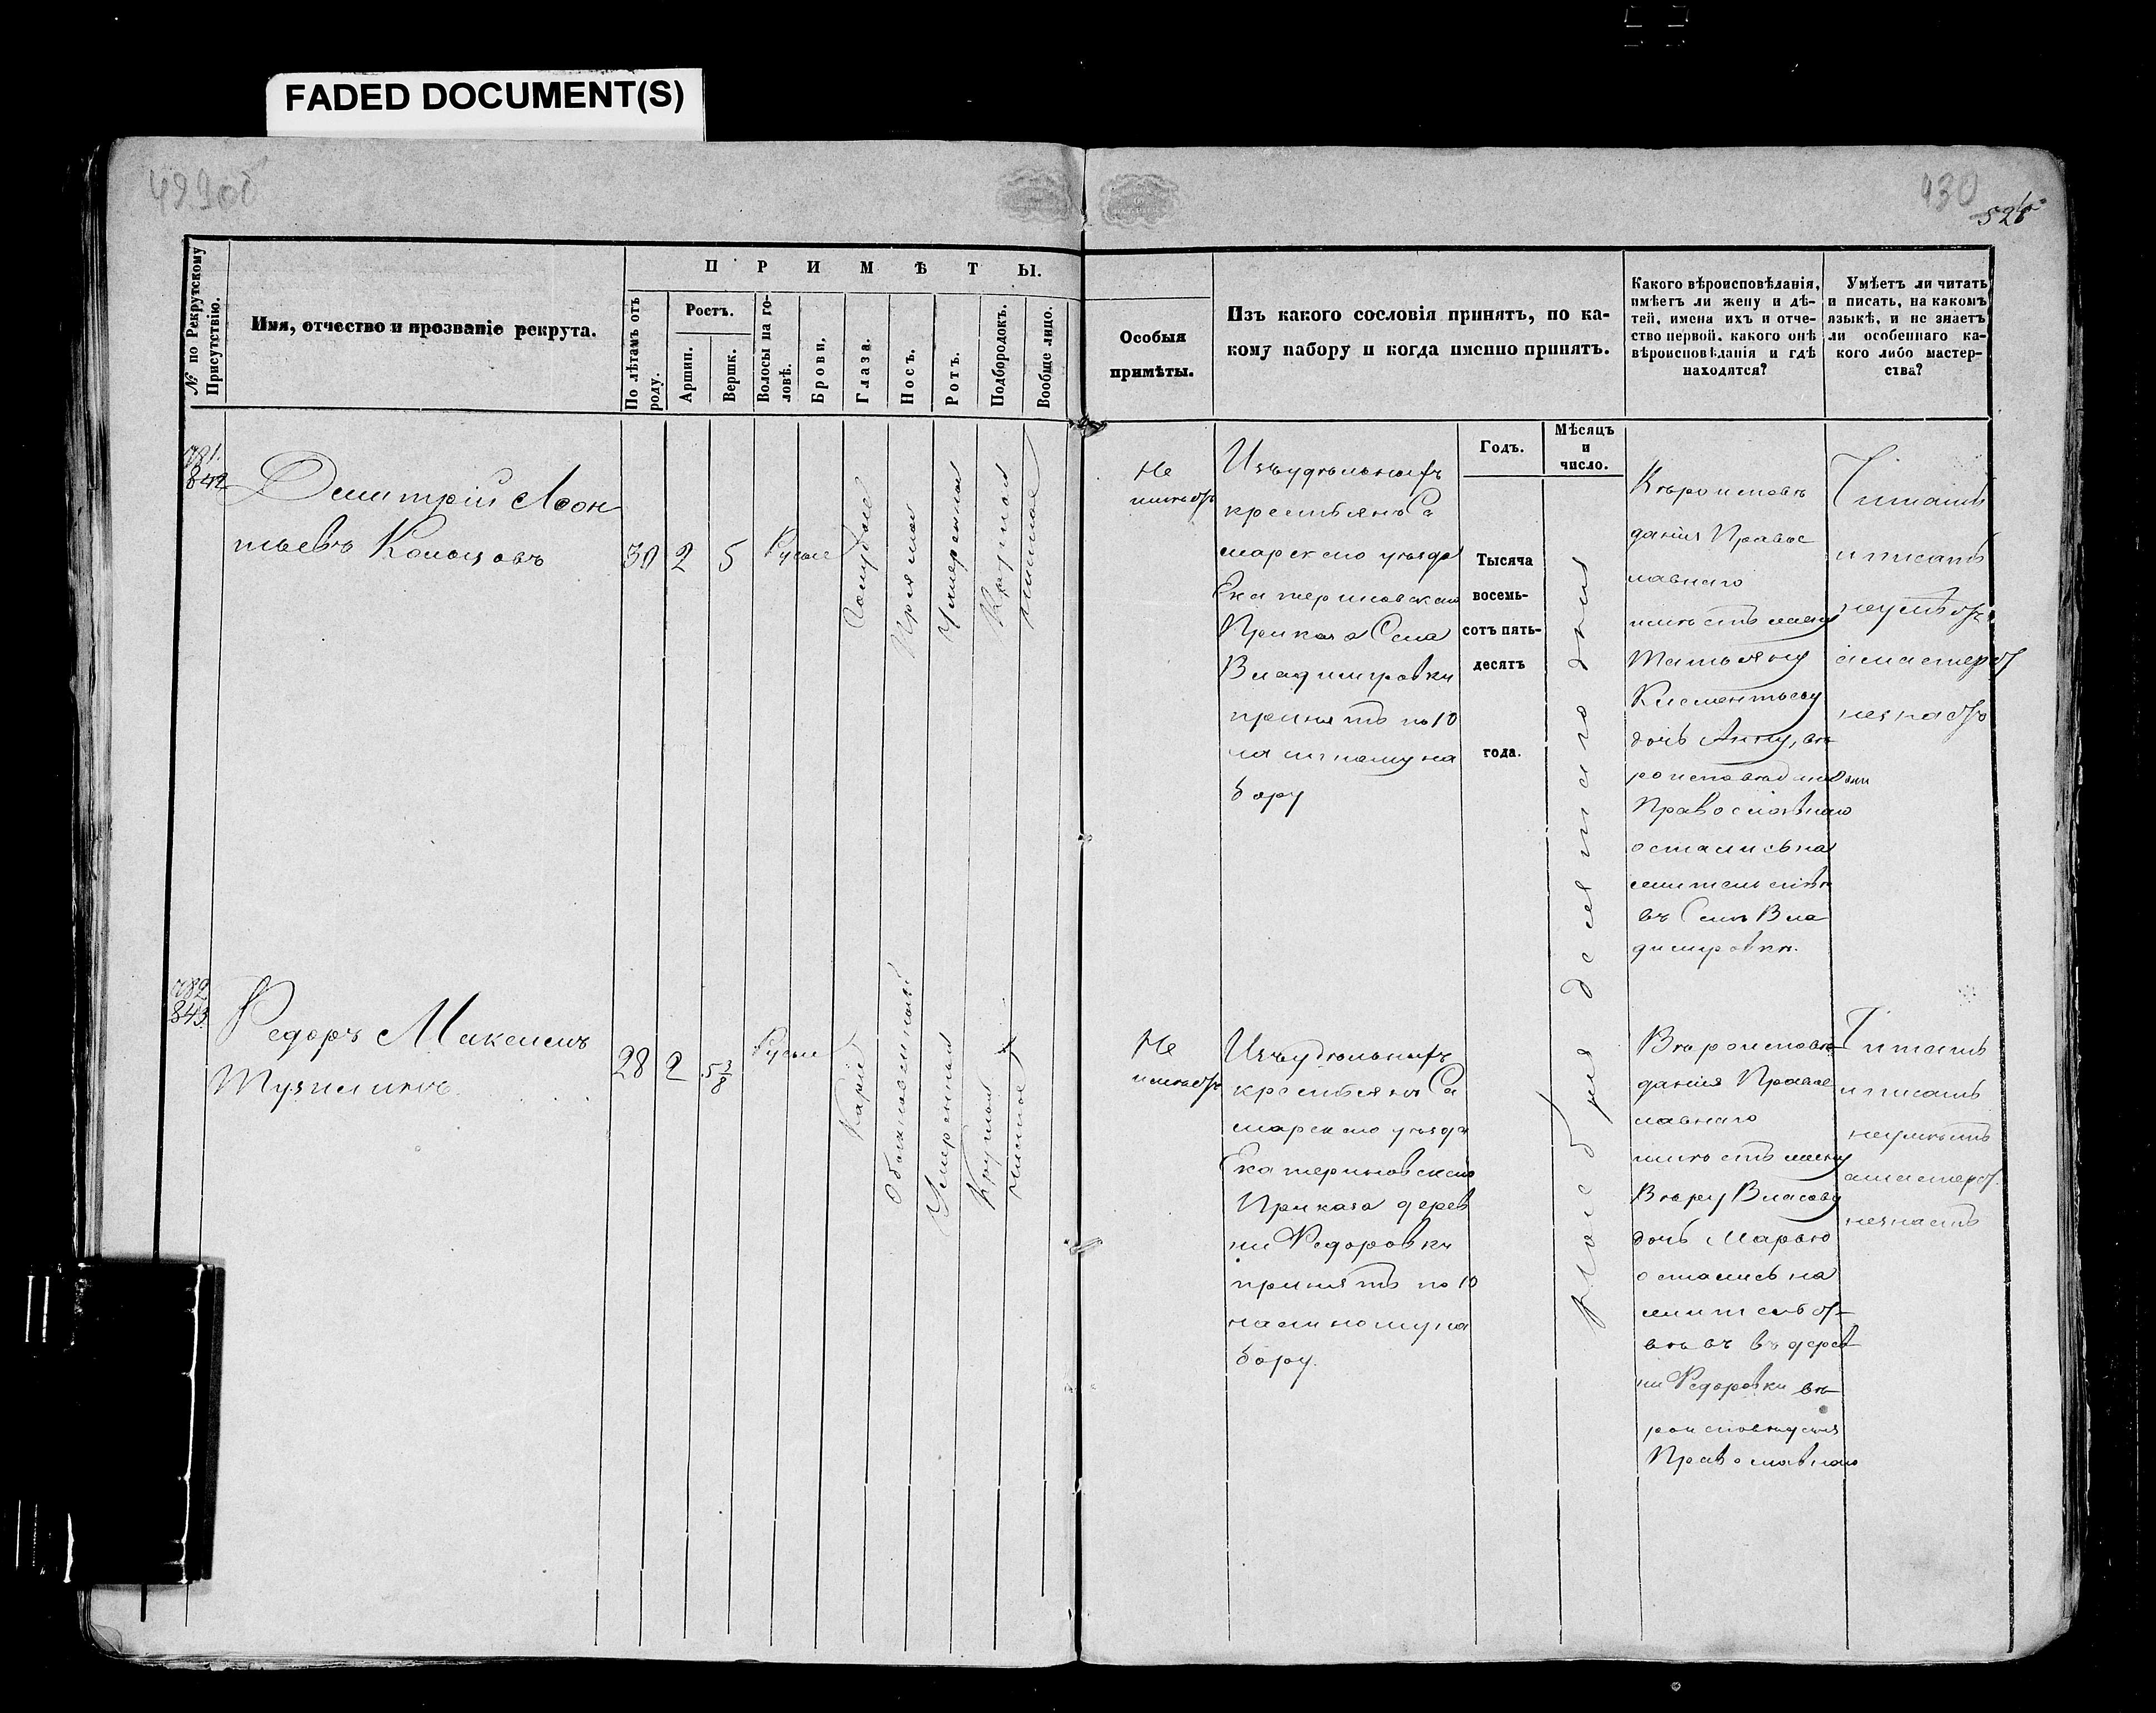 FADED DOCUMENT(S)
430
П Р И М Ѣ Т Ы.
№ по Рекрутскому Присутствію.
Имя, отчество и прозваніе рекрута.
По лѣтамъ отъ роду.
Ростъ.
Аршин.
Вершк.
Волосы на головѣ.
Брови.
Глаза.
Носъ.
Ротъ.
Подбородокъ.
Вообще лицо.
Особыя
примѣты.
Изъ какого сословія принятъ, по ка-
кому набору и когда именно принятъ.
Какого вѣроисповѣданія,
имѣетъ ли жену и дѣ-
тей, имена ихъ и отче-
ство первой, какого онѣ
вѣроисповѣданія и гдѣ
находятся?
Умѣетъ ли читать
и писать, на какомъ
языкѣ, и не знаетъ
ли особеннаго ка-
кого либо мастер-
ства?
Годъ.
Мѣсяцъ
и
число.
842
Димитрій Леон
тьевъ
30 2 5 Русые
Голубые
Прямой
Умеренный
Круглой
Чистое
Не
имѣетъ
Изъ удѣльныхъ
крестьянъ Са
марскаго уѣзда
Екатериновскаго
Приказа Села
Владимировки
принятъ по 10
частному на
бору
Тысяча
восемь-
сотъ пять-
десятъ
года.
Ноября десятаго дня
Вѣроисповѣ
данія Правос
лавнаго
имѣетъ жену
Татьяну
Клементьеву
дочь Анну, вѣ
роисповѣданія
Православнаго
остались на
жительствѣ
въ Селѣ Вла
димировки.
Читать
и писать
неумѣетъ
а мастерст
незнаетъ
843
Федоръ Максимъ
28 2 5 3/8 Русые
Каріе
Обыкновенный
Умеренный
Круглой
Чистое
Не
имѣетъ
Изъ удѣльныхъ
крестьянъ Са
марскаго уѣзда
Екатериновскаго
Приказа дерев
ни Федоровки
принятъ по 10
частному на
бору.
Вѣроисповѣ
данія Правос
лавнаго
имѣетъ жену
Вѣру Власову
дочь Марью
остались на
жительст
въ дерев
ни Федоровки вѣ
роисповѣданія
Православнаго
Читать
и писать
неумѣетъ
а мастерст.
незнаетъ